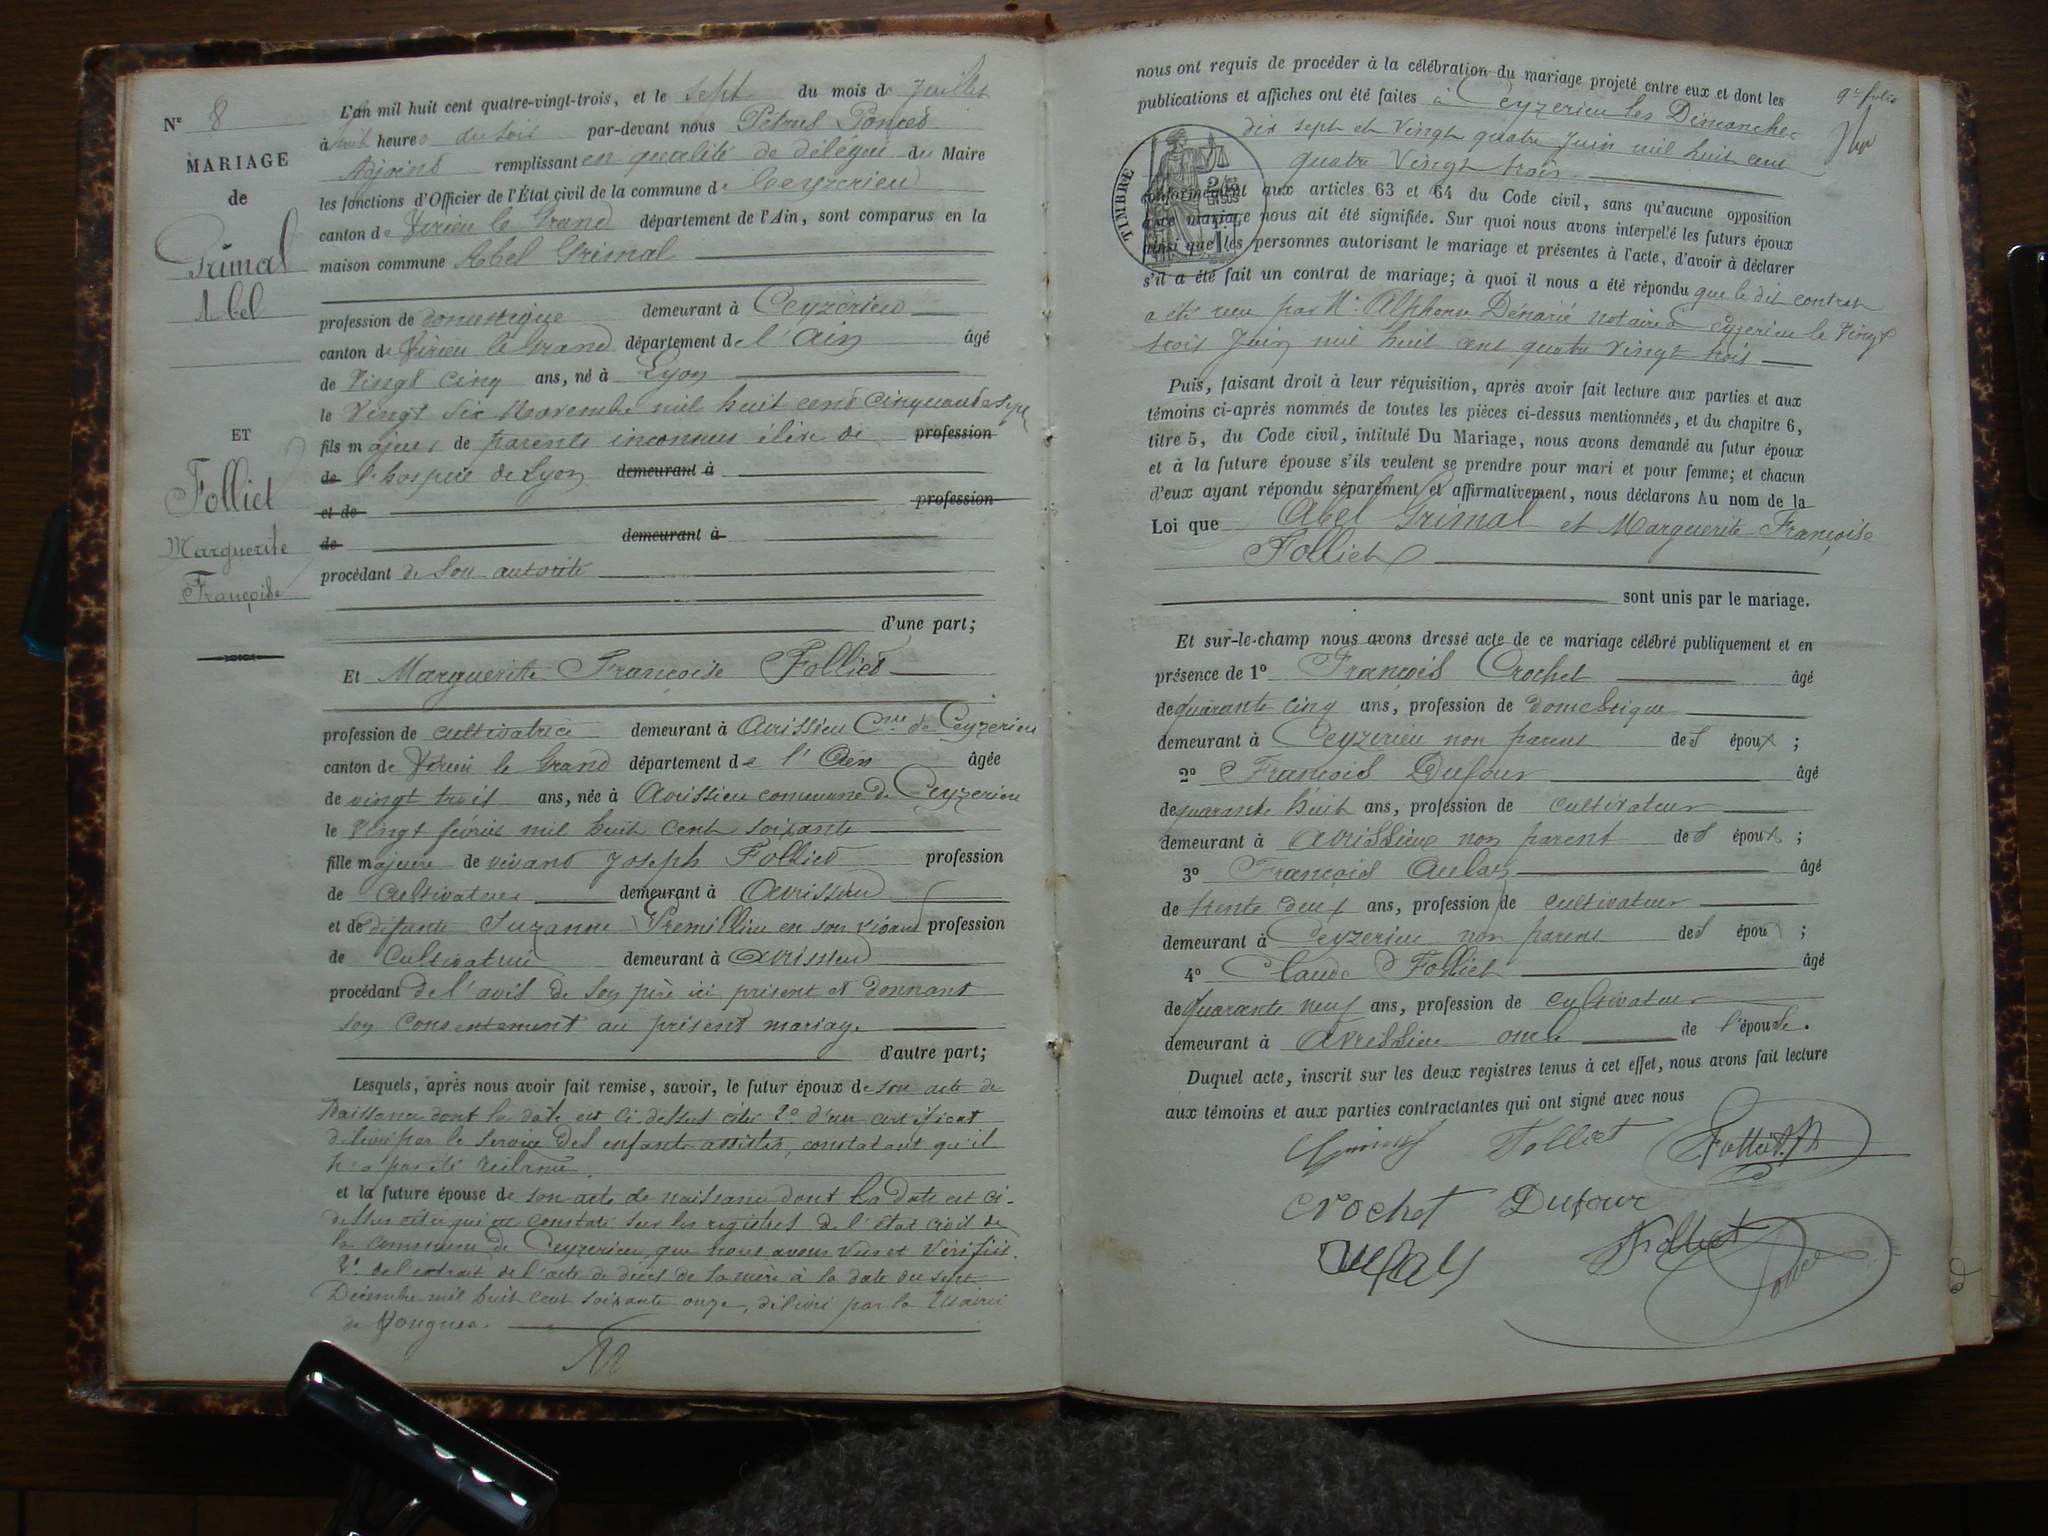 Nº 8
MARIAGE
de
Grimal
Abel
ET
Folliet
Marguerite
Françoise
L'an mil huit cent quatre-vingt-trois, et le sept du mois de Juillet
à huit heures du soir par-devant nous Pétrus Poncet
Adjoint remplissant en qualité de délégué du Maire
les fonctions d'Officier de l'État civil de la commune de Ceyzerieu
canton de Virieu le Grand département de l'Ain, sont comparus en la
maison commune Abel Grimal
profession de domestique demeurant à Ceyzérieu
canton de Virieu le Grand département de l'Ain âgé
de Vingt cinq ans, né à Lyon
le Vingt six Novembre mil huit cent cinquante sept
fils majeur de parents inconnus élève de profession
de l'hospice de Lyon demeurant à
et de profession
de demeurant à
procédant de son autorité
d'une part;
Et Marguerite Françoise Folliet
profession de cultivatrice demeurant à Avrissieu Cne de Ceyzerieu
canton de Virieu le Grand département de l'Ain âgée
de vingt trois ans, née à Avrissieu commune de Ceyzerieu
le Vingt février mil huit cent soixante
fille majeure de vivant Joseph Folliet profession
de cultivateur demeurant à Avrissieu
et de défunte Suzanne Premillieu en son vivant profession
de Cultivatrice demeurant à Avrissieu
procédant de l'avis de son père ici présent et donnant
son consentement au présent mariage
d'autre part;
Lesquels, après nous avoir fait remise, savoir, le futur époux de son acte de
Naissance dont la date est ci dessus citée 2º d'un certificat
délivré par le service des enfants assistés, constatant qu'il
n'a pas été réclamé.
et la future épouse de son acte de naissance dont la date est ci-
dessus citée qui est constaté sur les registres de l'état civil de
la commune de Ceyzerieu que nous avons vus et vérifiés.
2º de l'extrait de l'acte de décès de sa mère à la date du sept
Décembre mil huit cent soixante onze, délivré par la Mairie
de Vongnes.
9e folio
nous ont requis de procéder à la célébration du mariage projeté entre eux et dont les
publications et affiches ont été faites à Ceyzerieu les Dimanches
dix sept et Vingt quatre Juin mil huit cent
quatre Vingt trois
TIMBRE
conformément aux articles 63 et 64 du Code civil, sans qu'aucune opposition
à ce mariage nous ait été signifiée. Sur quoi nous avons interpellé les futurs époux
ainsi que les personnes autorisant le mariage et présentes à l'acte, d'avoir à déclarer
s'il a été fait un contrat de mariage; à quoi il nous a été répondu que le dit contrat
a été reçu par Me Alphonse Dénarié notaire à Ceyzerieu le Vingt
trois Juin mil huit cent quatre vingt trois
Puis, faisant droit à leur réquisition, après avoir fait lecture aux parties et aux
témoins ci-après nommés de toutes les pièces ci-dessus mentionnées, et du chapitre 6,
titre 5, du Code civil, intitulé Du Mariage, nous avons demandé au futur époux
et à la future épouse s'ils veulent se prendre pour mari et pour femme; et chacun
d'eux ayant répondu séparément et affirmativement, nous déclarons Au nom de la
Loi que Abel Grimal et Marguerite Françoise
Folliet
sont unis par le mariage.
Et sur-le-champ nous avons dressé acte de ce mariage célébré publiquement et en
présence de 1º François Crochet âgé
de quarante cinq ans, profession de domestique
demeurant à Ceyzerieu non parent des époux ;
2º François Dufour âgé
de quarante huit ans, profession de cultivateur
demeurant à Avrissieu non parent des époux ;
3º François âgé
de trente deux ans, profession de cultivateur
demeurant à Ceyzerieu non parent des époux ;
4º Claude Folliet âgé
de quarante neuf ans, profession de cultivateur
demeurant à Avrissieu oncle de l'épouse.
Duquel acte, inscrit sur les deux registres tenus à cet effet, nous avons fait lecture
aux témoins et aux parties contractantes qui ont signé avec nous
Grimal Folliet Folliet
Crochet Dufour
Folliet Poncet